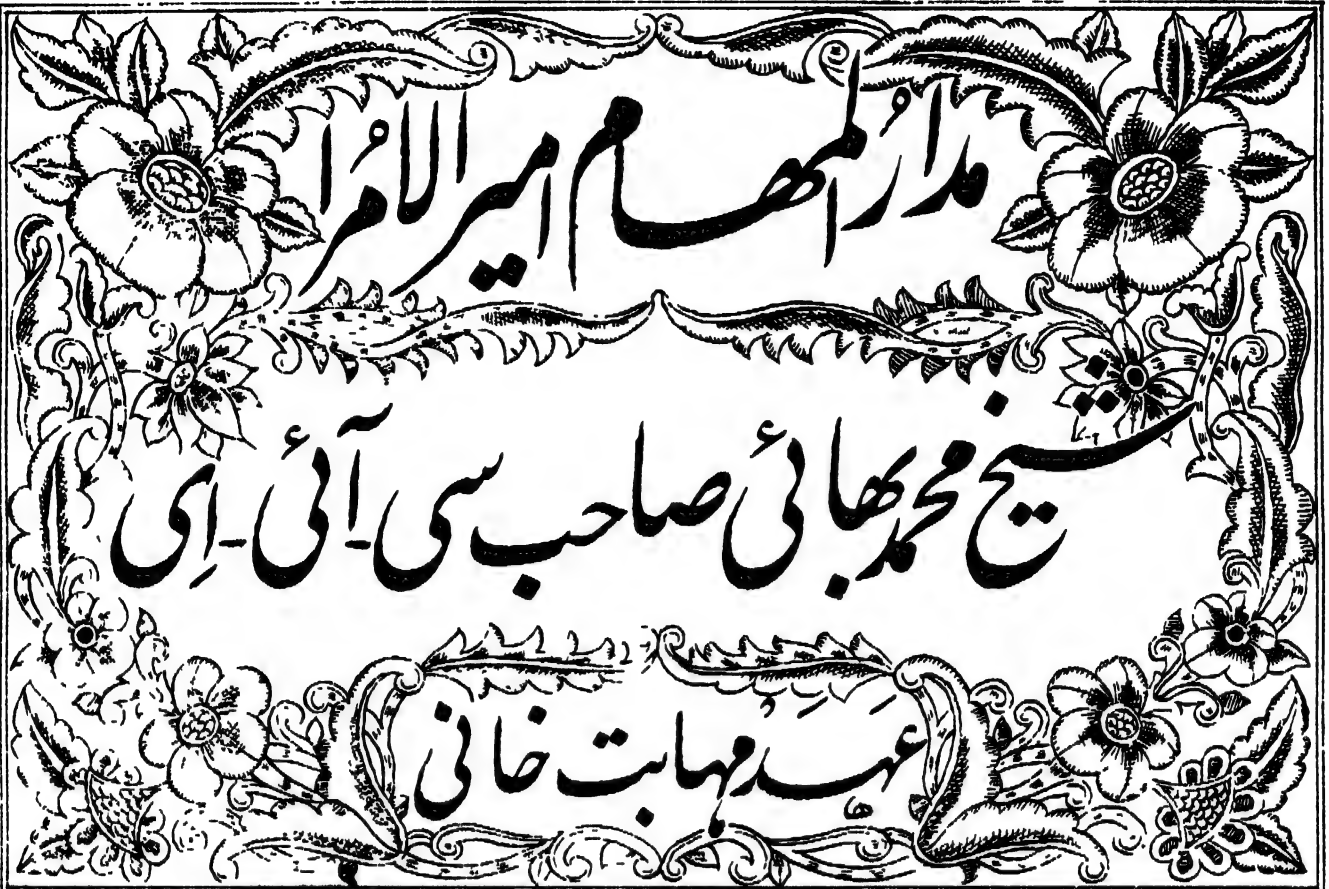 مدارُ المہام امیر الامُرا
شیخ محمد بھائی صاحب سی۔آئی۔اِی
عَہدِ مہابت خانی